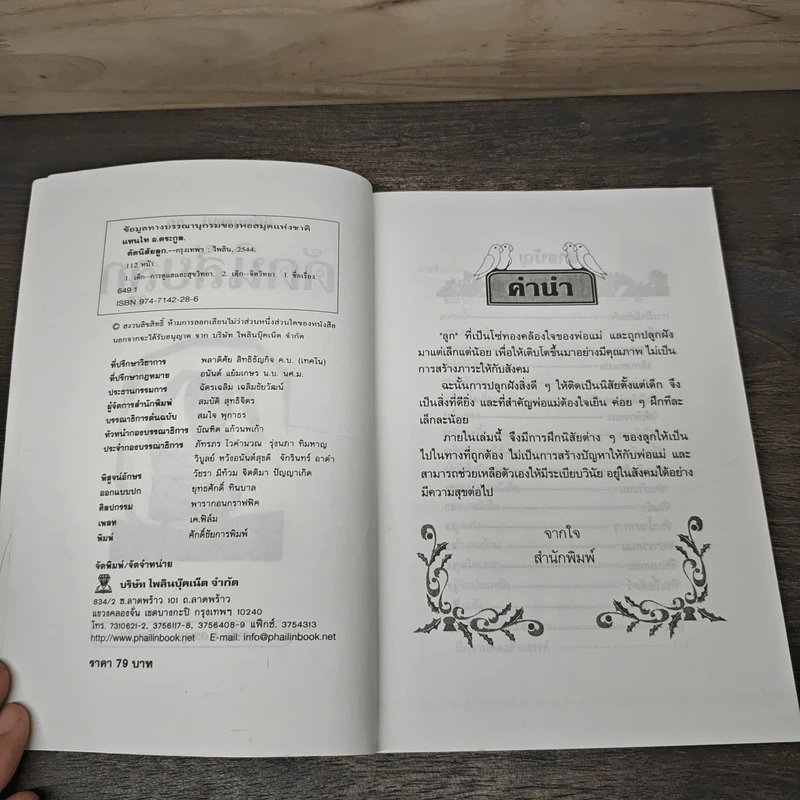 ข้อมูลทางบรรณานุกรมของหอสมุดแห่งชาติ
แทนไท อ.ตระกูล.
ดัดนิสัยลูก.--กรุงเทพฯ : ไพลิน, 2544.
112 หน้า.
1. เด็ก--การดูแลและสุขวิทยา. 2. เด็ก--จิตวิทยา. I. ชื่อเรื่อง.
649.1
ISBN 974-7142-28-6
© สงวนลิขสิทธิ์ ห้ามการลอกเลียนไม่ว่าส่วนหนึ่งส่วนใดของหนังสือ
นอกจากจะได้รับอนุญาต จาก บริษัท ไพลินบุ๊คเน็ต จำกัด
ที่ปรึกษาวิชาการ พลาดิศัย สิทธิธัญกิจ ค.บ. (เทคโน)
ที่ปรึกษากฎหมาย อนันต์ แย้มเกษร น.บ. นศ.ม.
ประธานกรรมการ ฉัตรเฉลิม เฉลิมชัยวัฒน์
ผู้จัดการสำนักพิมพ์ สมบัติ สุทธิจิตร
บรรณาธิการต้นฉบับ สมใจ พุกาธร
หัวหน้ากองบรรณาธิการ บัณฑิต แก้วนพเก้า
ประจำกองบรรณาธิการ ภัทรภร ไวคำนวณ รุ่งนภา ทิมหาญ
วิบูลย์ หวังอนันต์สุขดี จักรินทร์ อาดำ
พิสูจน์อักษร วัชรา มีท้วม จิตติมา ปัญญาเกิด
ออกแบบปก ยุทธศักดิ์ ทินบาล
ศิลปกรรม พารากอนกราฟฟิค
เพลท เค.ฟิล์ม
พิมพ์ ศักดิ์ชัยการพิมพ์
จัดพิมพ์/จัดจำหน่าย
บริษัท ไพลินบุ๊คเน็ต จำกัด
834/2 ซ.ลาดพร้าว 101 ถ.ลาดพร้าว
แขวงคลองจั่น เขตบางกะปิ กรุงเทพฯ 10240
โทร. 7310621-2, 3756117-8, 3756408-9 แฟ็กซ์. 3754313
http://www.phailinbook.net E-mail: info@phailinbook.net
ราคา 79 บาท
คำนำ
"ลูก" ที่เป็นโซ่ทองคล้องใจของพ่อแม่ และถูกปลูกฝัง
มาแต่เล็กแต่น้อย เพื่อให้เติบโตขึ้นมาอย่างมีคุณภาพ ไม่เป็น
การสร้างภาระให้กับสังคม
ฉะนั้นการปลูกฝังสิ่งดี ๆ ให้ติดเป็นนิสัยตั้งแต่เด็ก จึง
เป็นสิ่งที่ดียิ่ง และที่สำคัญพ่อแม่ต้องใจเย็น ค่อย ๆ ฝึกทีละ
เล็กละน้อย
ภายในเล่มนี้ จึงมีการฝึกนิสัยต่าง ๆ ของลูกให้เป็น
ไปในทางที่ถูกต้อง ไม่เป็นการสร้างปัญหาให้กับพ่อแม่ และ
สามารถช่วยเหลือตัวเองให้มีระเบียบวินัย อยู่ในสังคมได้อย่าง
มีความสุขต่อไป
จากใจ
สำนักพิมพ์